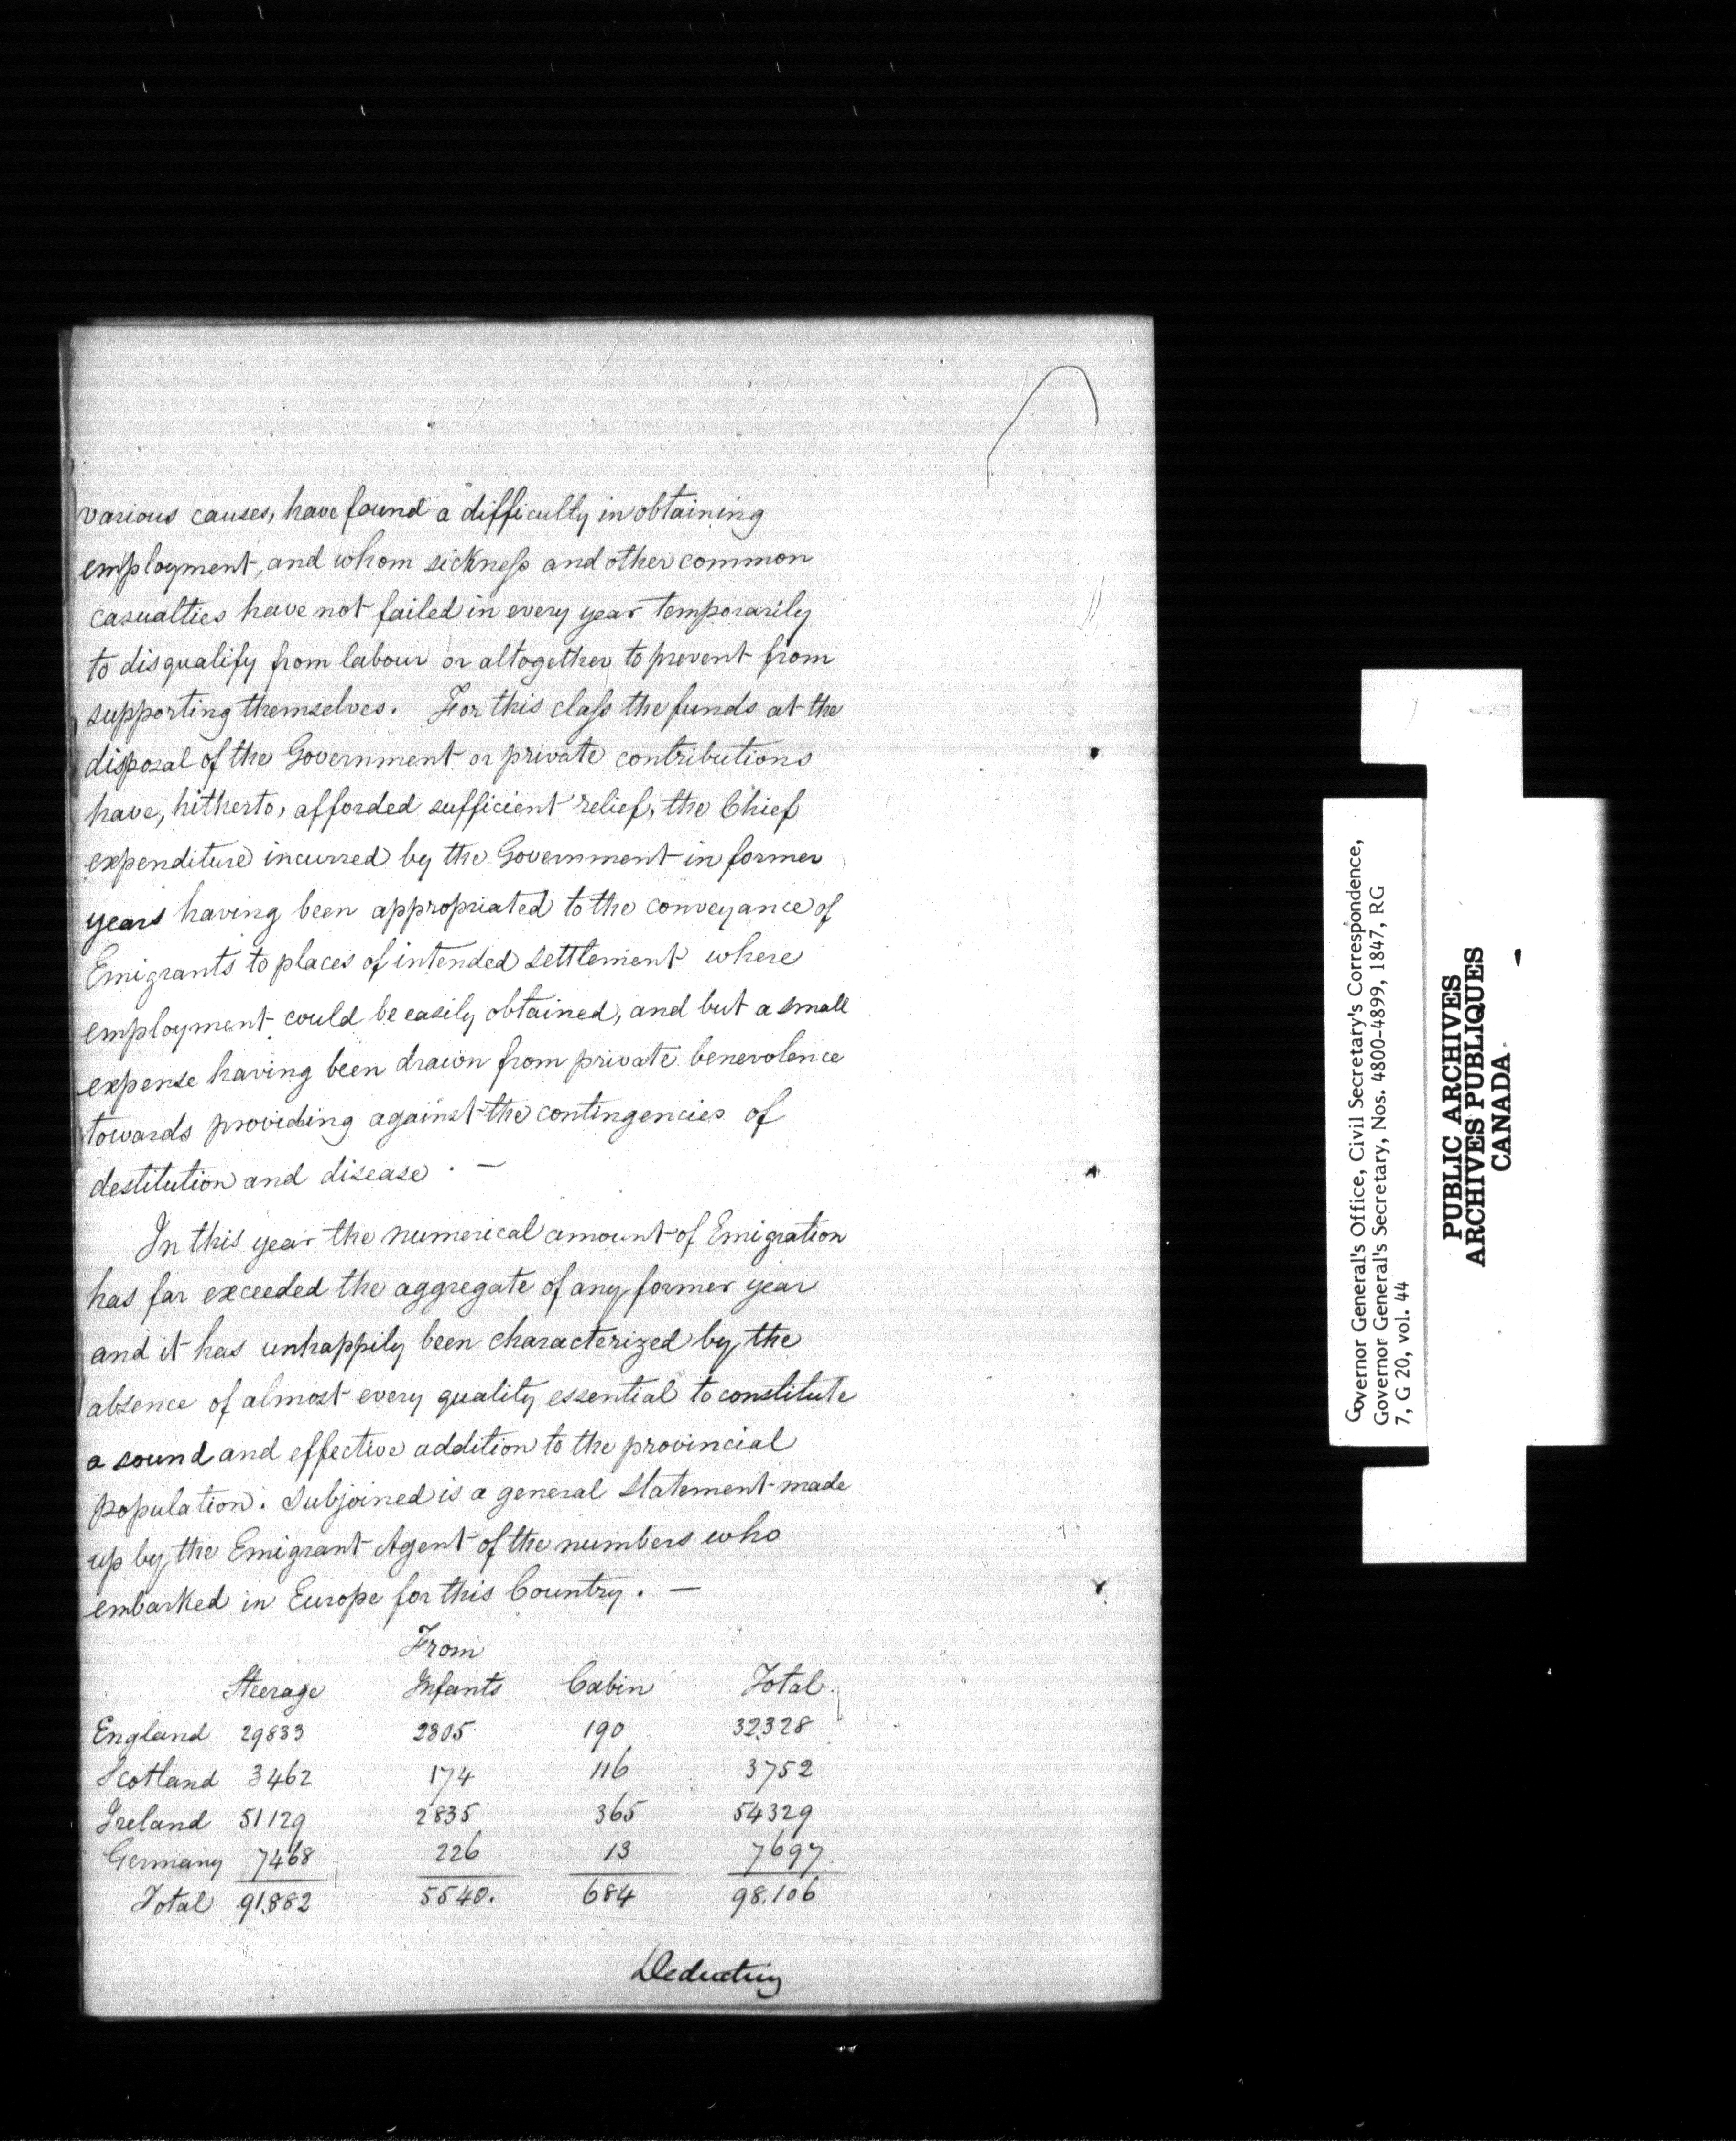 various causes, have found a difficulty in obtaining
employment, and whom sickness and other common
casualties have not failed in every year temporarily
to disqualify from labour or altogether to prevent from
supporting themselves. For this class the funds at the
disposal of the Government or private contributions
have, hitherto, afforded sufficient relief, the Chief
expenditure incurred by the Government in former
years having been appropriated to the conveyance of
Emigrants to places of intended settlement where
employment could be easily obtained, and but a small
expense having been drawn from private benevolence
towards providing against the contingencies of
destitution and disease. —
In this year the numerical amount of Emigration
has far exceeded the aggregate of any former year
and it has unhappily been characterized by the
absence of almost every quality essential to constitute
a sound and effective addition to the provincial
population. Subjoined is a general statement made
up by the Emigrant Agent of the numbers who
embarked in Europe for this Country. —
From
Steerage Infants Cabin Total.
England 29833 2305 190 32328
Scotland 3462 174 116 3752
Ireland 51129 2835 365 54329
Germany 7468 226 13 7697.
Total 91.882 5540. 684 98.106
Deducting
Governor General's Office, Civil Secretary's Correspondence,
Governor General's Secretary, Nos. 4800-4899, 1847, RG
7, G 20, vol. 44
PUBLIC ARCHIVES
ARCHIVES PUBLIQUES
CANADA